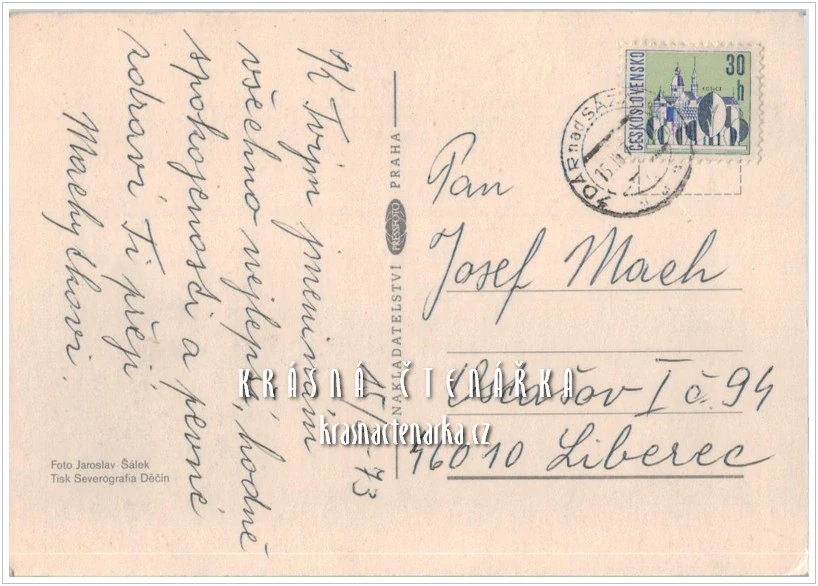 K Tvým jmeninám
všechno nejlepší, hodně
spokojenosti a pevné
zdraví Ti přejí
Machyčkovi.
15/ -73
Foto Jaroslav Šálek
Tisk Severografia Děčín
NAKLADATELSTVÍ PRESSFOTO PRAHA
ČESKOSLOVENSKO
30 h
KOŠICE
ŽĎÁR nad SÁZ
15.III
Pan
Josef Mach
Ostašov I č. 94
46010 Liberec
KRÁSNÁ ČTENÁŘKA
krasnactenarka.cz